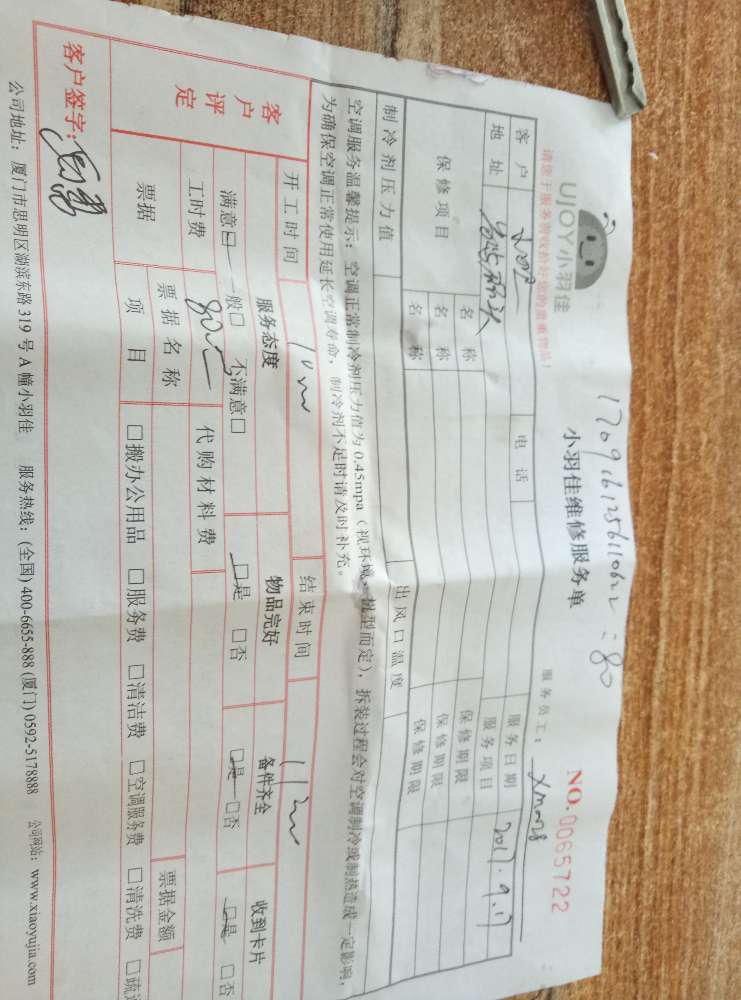 UJOY小羽佳
请您于服务前收拾好您的贵重物品!
170916125611062 =80
小羽佳维修服务单
NO.0065722
服务员工:
客户 电话 服务日期 2017.9.17
地址 服务项目
保修项目 名称 保修期限
名称 保修期限
名称 保修期限
制冷剂压力值 出风口温度
空调服务温馨提示:空调正常制冷剂压力值为0.45mpa(视环境、机型而定),拆装过程会对空调制冷或制热造成一定影响,
为确保空调正常使用延长空调寿命,制冷剂不足时请及时补充。
开工时间 结束时间
客户评定 服务态度 物品完好 备件齐全 收到卡片
满意□ 一般□ 不满意□ □是 □否 □是 □否 □是 □否
工时费 80元 代购材料费
票据 票据名称 票据金额
项目 □搬办公用品 □服务费 □清洁费 □空调服务费 □清洗费 □疏
客户签字:
公司地址:厦门市思明区湖滨东路319号A幢小羽佳 服务热线:(全国)400-6655-888 (厦门)0592-5178888 公司网站:www.xiaoyujia.com